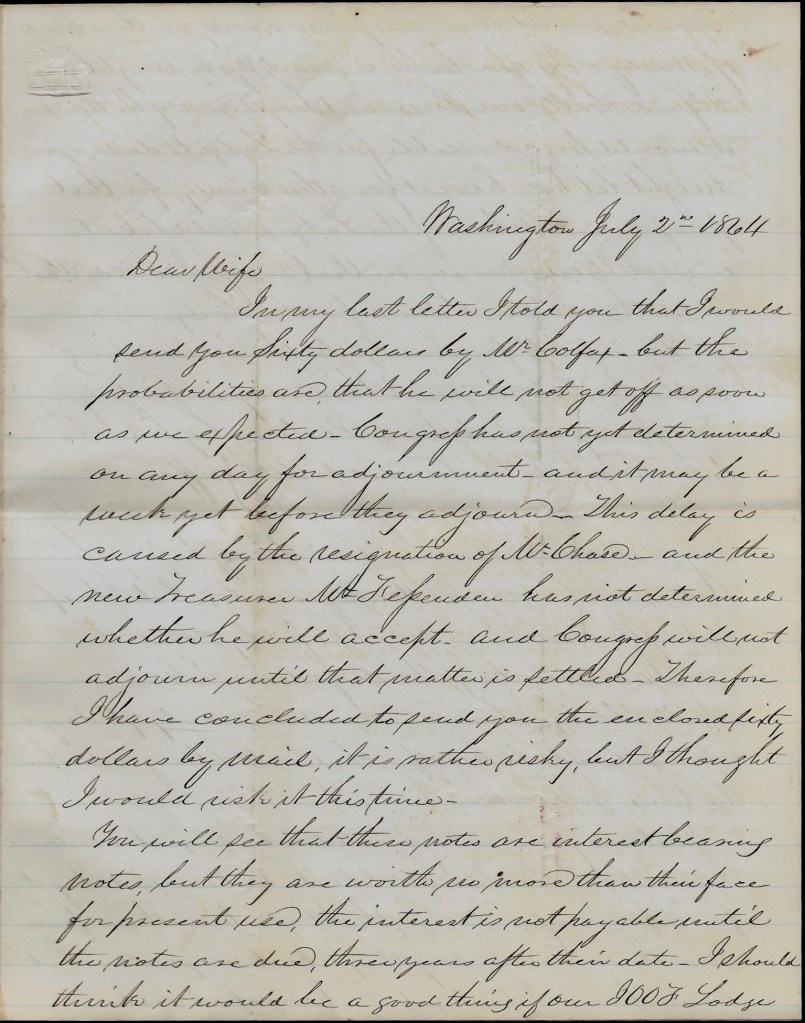 Washington July 2nd 1864
Dear Wife
In my last letter I told you that I would
send you Sixty dollars by Mr Colfax - but the
probabilities are, that he will not get off as soon
as we expected - Congress has not yet determined
on any day for adjournment - and it may be a
week yet before they adjourn - This delay is
caused by the resignation of Mr Chase - and the
new Treasurer Mr Fessenden has not determined
whether he will accept - and Congress will not
adjourn until that matter is settled - Therefore
I have concluded to send you the enclosed sixty
dollars by mail, it is rather risky, but I thought
I would risk it this time -
You will see that these notes are interest bearing
notes, but they are worth no more than their face
for present use, the interest is not payable until
the notes are due, three years after their date - I should
think it would be a good thing if our IOOF Lodge